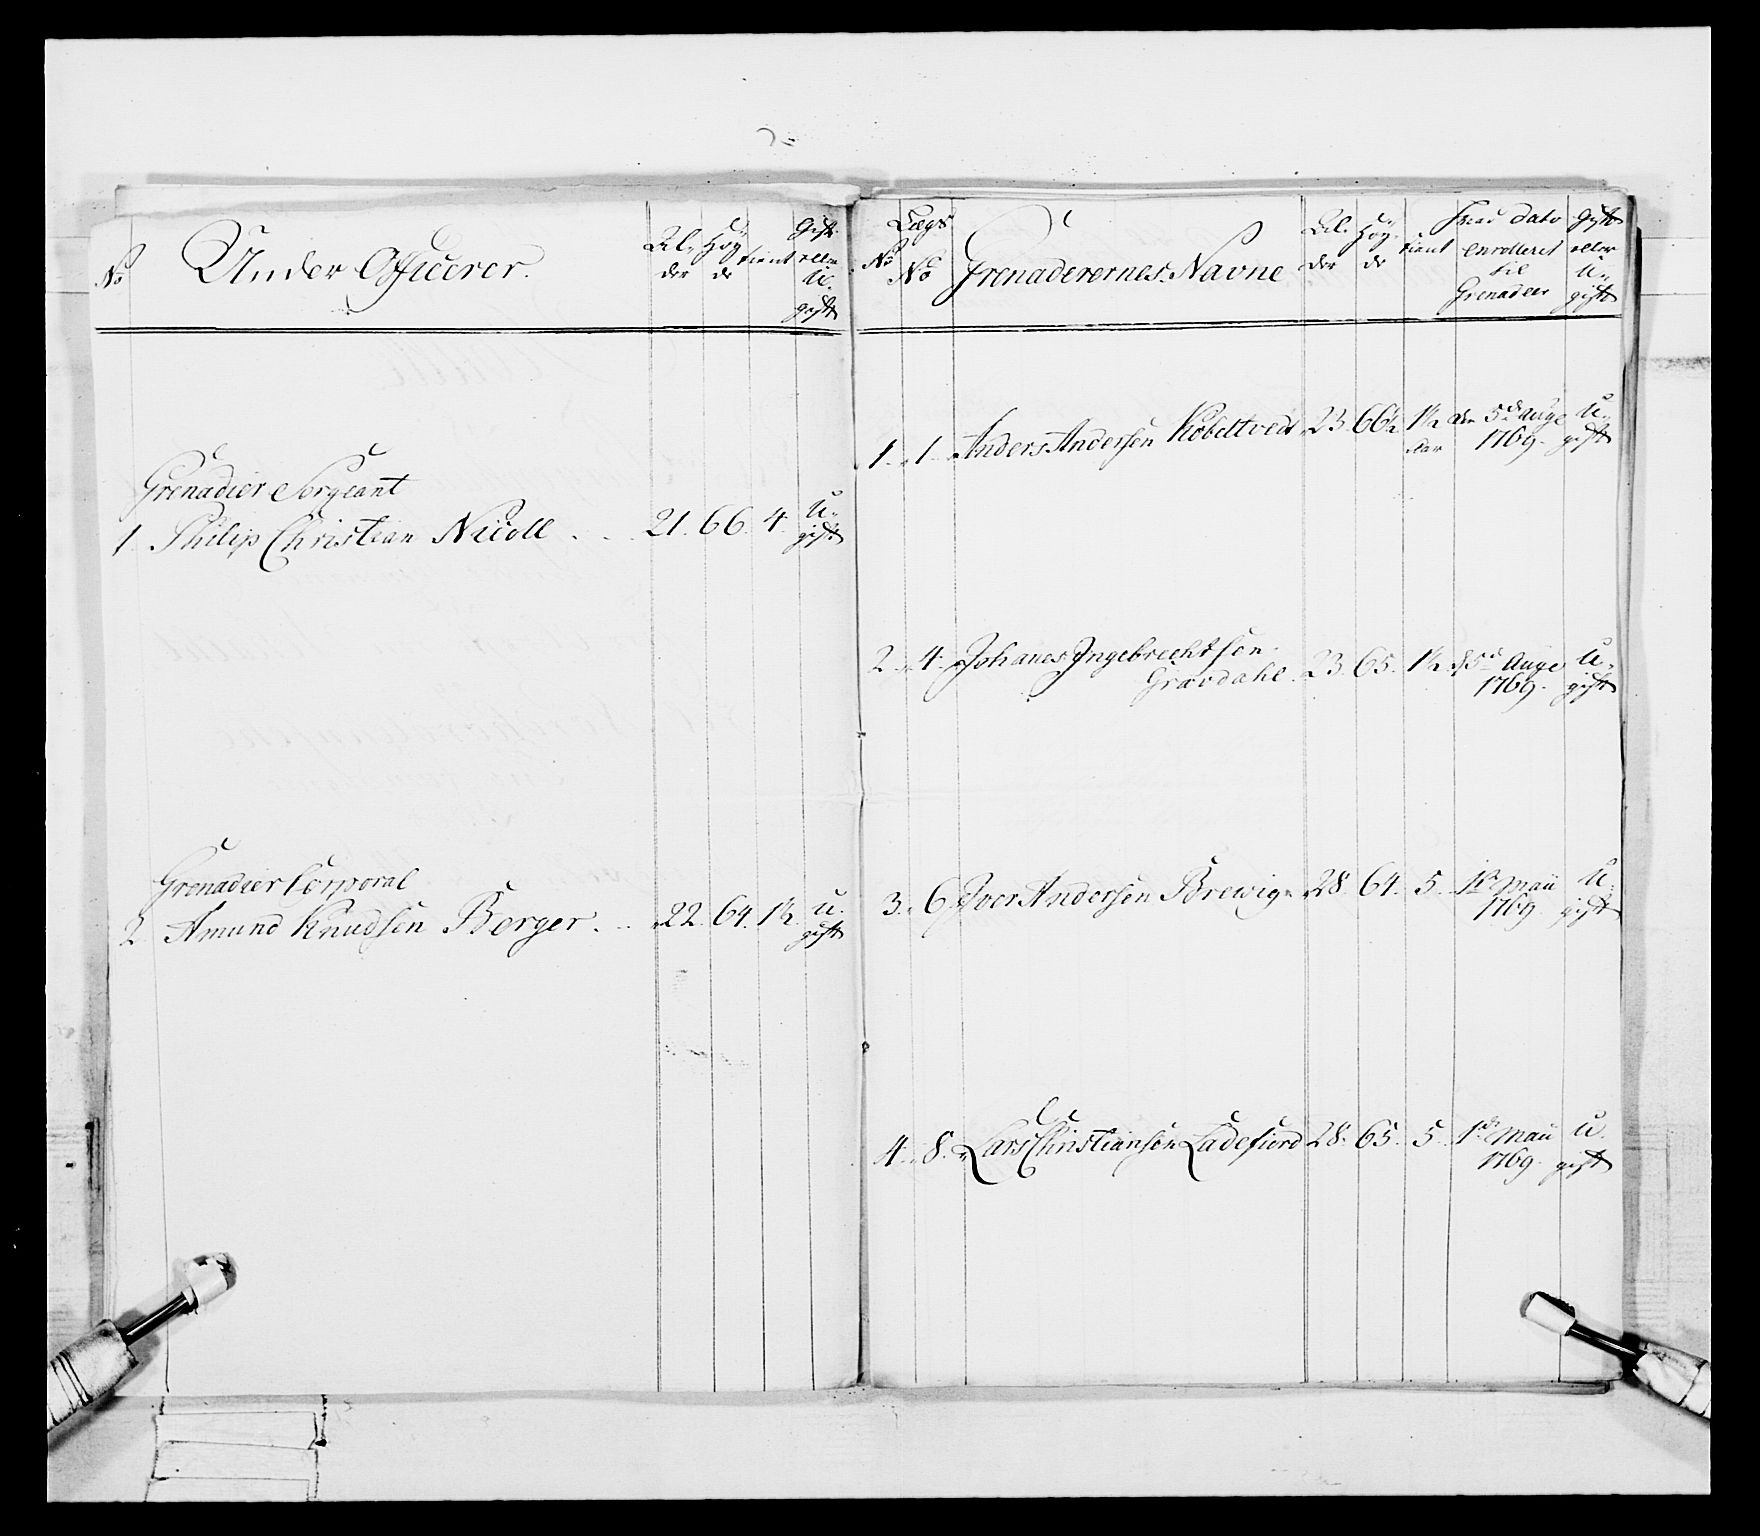 No Under Officerer. Al- der Höy de tient Gift eller U- gift
Grenadier Sergeant
1. Philip Christian Nicoll . . . 21. 66. 4. U- gift
Grenadier Corporal
2. Amund Knudsen Berger . . . 22. 64. 1½. u- gift
No Lægs No Grenaderernes Navne Al- der Höy- de tient hvad dato enrolleret til Grenadeer Gift eller U- gift
1. 1. Anders Andersen 23. 66½ 1½ Aar den 5te Auge 1769. U- gift
2. 4. Johanes Ingebrechtsen
Grævdahl. 23. 65. 1½. d 5te Auge 1769. U- gift
3. 6. Iver Andersen Brewig 28. 64. 5. 1te Maii 1769. U- gift
4. 8. Lars Christiansen Ladefiord 28. 65. 5. 1te Maii 1769. U- gift